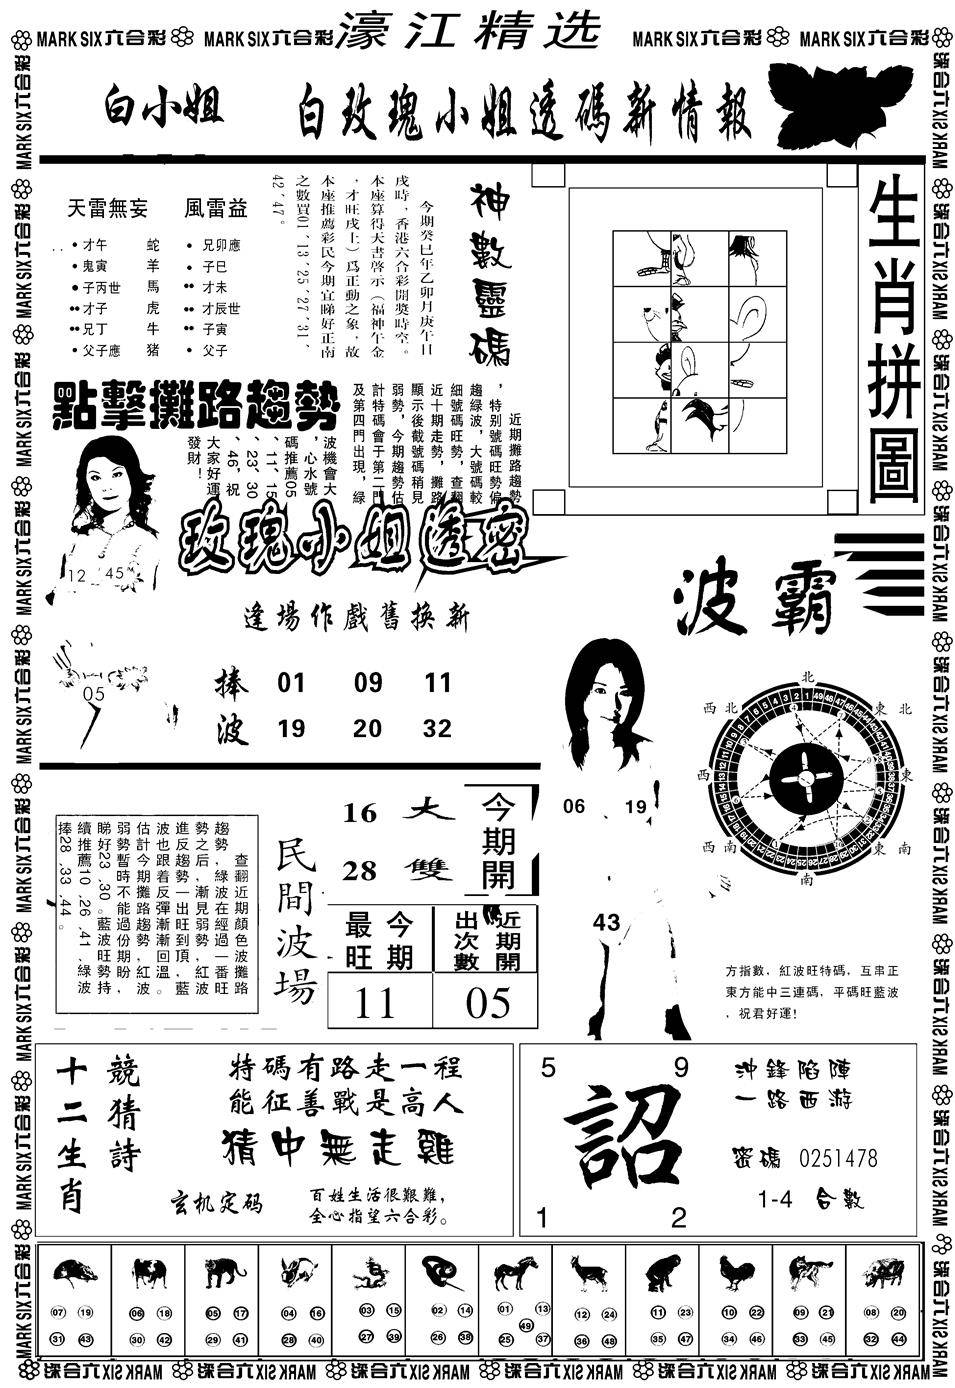 MARK SIX六合彩 MARK SIX六合彩 濠江精选 MARK SIX六合彩 MARK SIX六合彩
白小姐 白玫瑰小姐透碼新情報
天雷無妄 風雷益
才午 蛇 兄卯應
鬼寅 羊 子巳
子丙世 馬 才未
才子 虎 才辰世
兄丁 牛 子寅
父子應 豬 父子
神數靈碼
今期癸巳年乙卯月庚午日
戌時，香港六合彩開獎時空。
本座算得天書啓示（福神午金
，才旺戌上）爲正動之象，故
本座推薦彩民今期宜睇好正南
之數買01，13，25，27，31，
42，47。
生肖拼圖
點擊攤路趨勢
近期攤路趨勢
，特别號碼旺勢偏
趨綠波，大號碼較
細號碼旺勢，查翻
近十期走勢，攤路
顯示後截號碼稍見
弱勢，今期趨勢估
計特碼會于第二門
及第四門出現，綠
波機會大
，心水號
碼推薦05
、11、15
、23、30
、46，祝
大家好運
發財！
12 45
05
玫瑰小姐透密
逢場作戲舊换新
捧 01 09 11
波 19 20 32
波霸
06 19
43
北
西北 東北
西 東
西南 東南
南
方指數，紅波旺特碼，互串正
東方能中三連碼，平碼旺藍波
，祝君好運！
查翻近期顏色波攤路
趨勢，綠波在經過一番旺
勢之后，漸見弱勢，紅波
進反趨勢一出旺到頂，藍
波也跟着反彈漸漸回溫。
估計今期攤路趨勢紅波
弱勢暫時不能過份期盼，
睇好23，30。藍波旺勢持
續推薦10，26，41，綠波
捧28，33，44。
民間波場
16 大 今期開
28 雙
今期最旺 近期開出次數
11 05
十二生肖
競猜詩
特碼有路走一程
能征善戰是高人
猜中無走雞
玄机定码 百姓生活很艱難，
全心指望六合彩。
5 9
詔
1 2
沖鋒陷陣
一路西游
密碼 0251478
1-4 合數
07 19 06 18 05 17 04 16 03 15 02 14 01 13 12 24 11 23 10 22 09 21 08 20
49
31 43 30 42 29 41 28 40 27 39 26 38 25 37 36 48 35 47 34 46 33 45 32 44
MARK SIX六合彩 MARK SIX六合彩 MARK SIX六合彩 MARK SIX六合彩 MARK SIX六合彩 MARK SIX六合彩